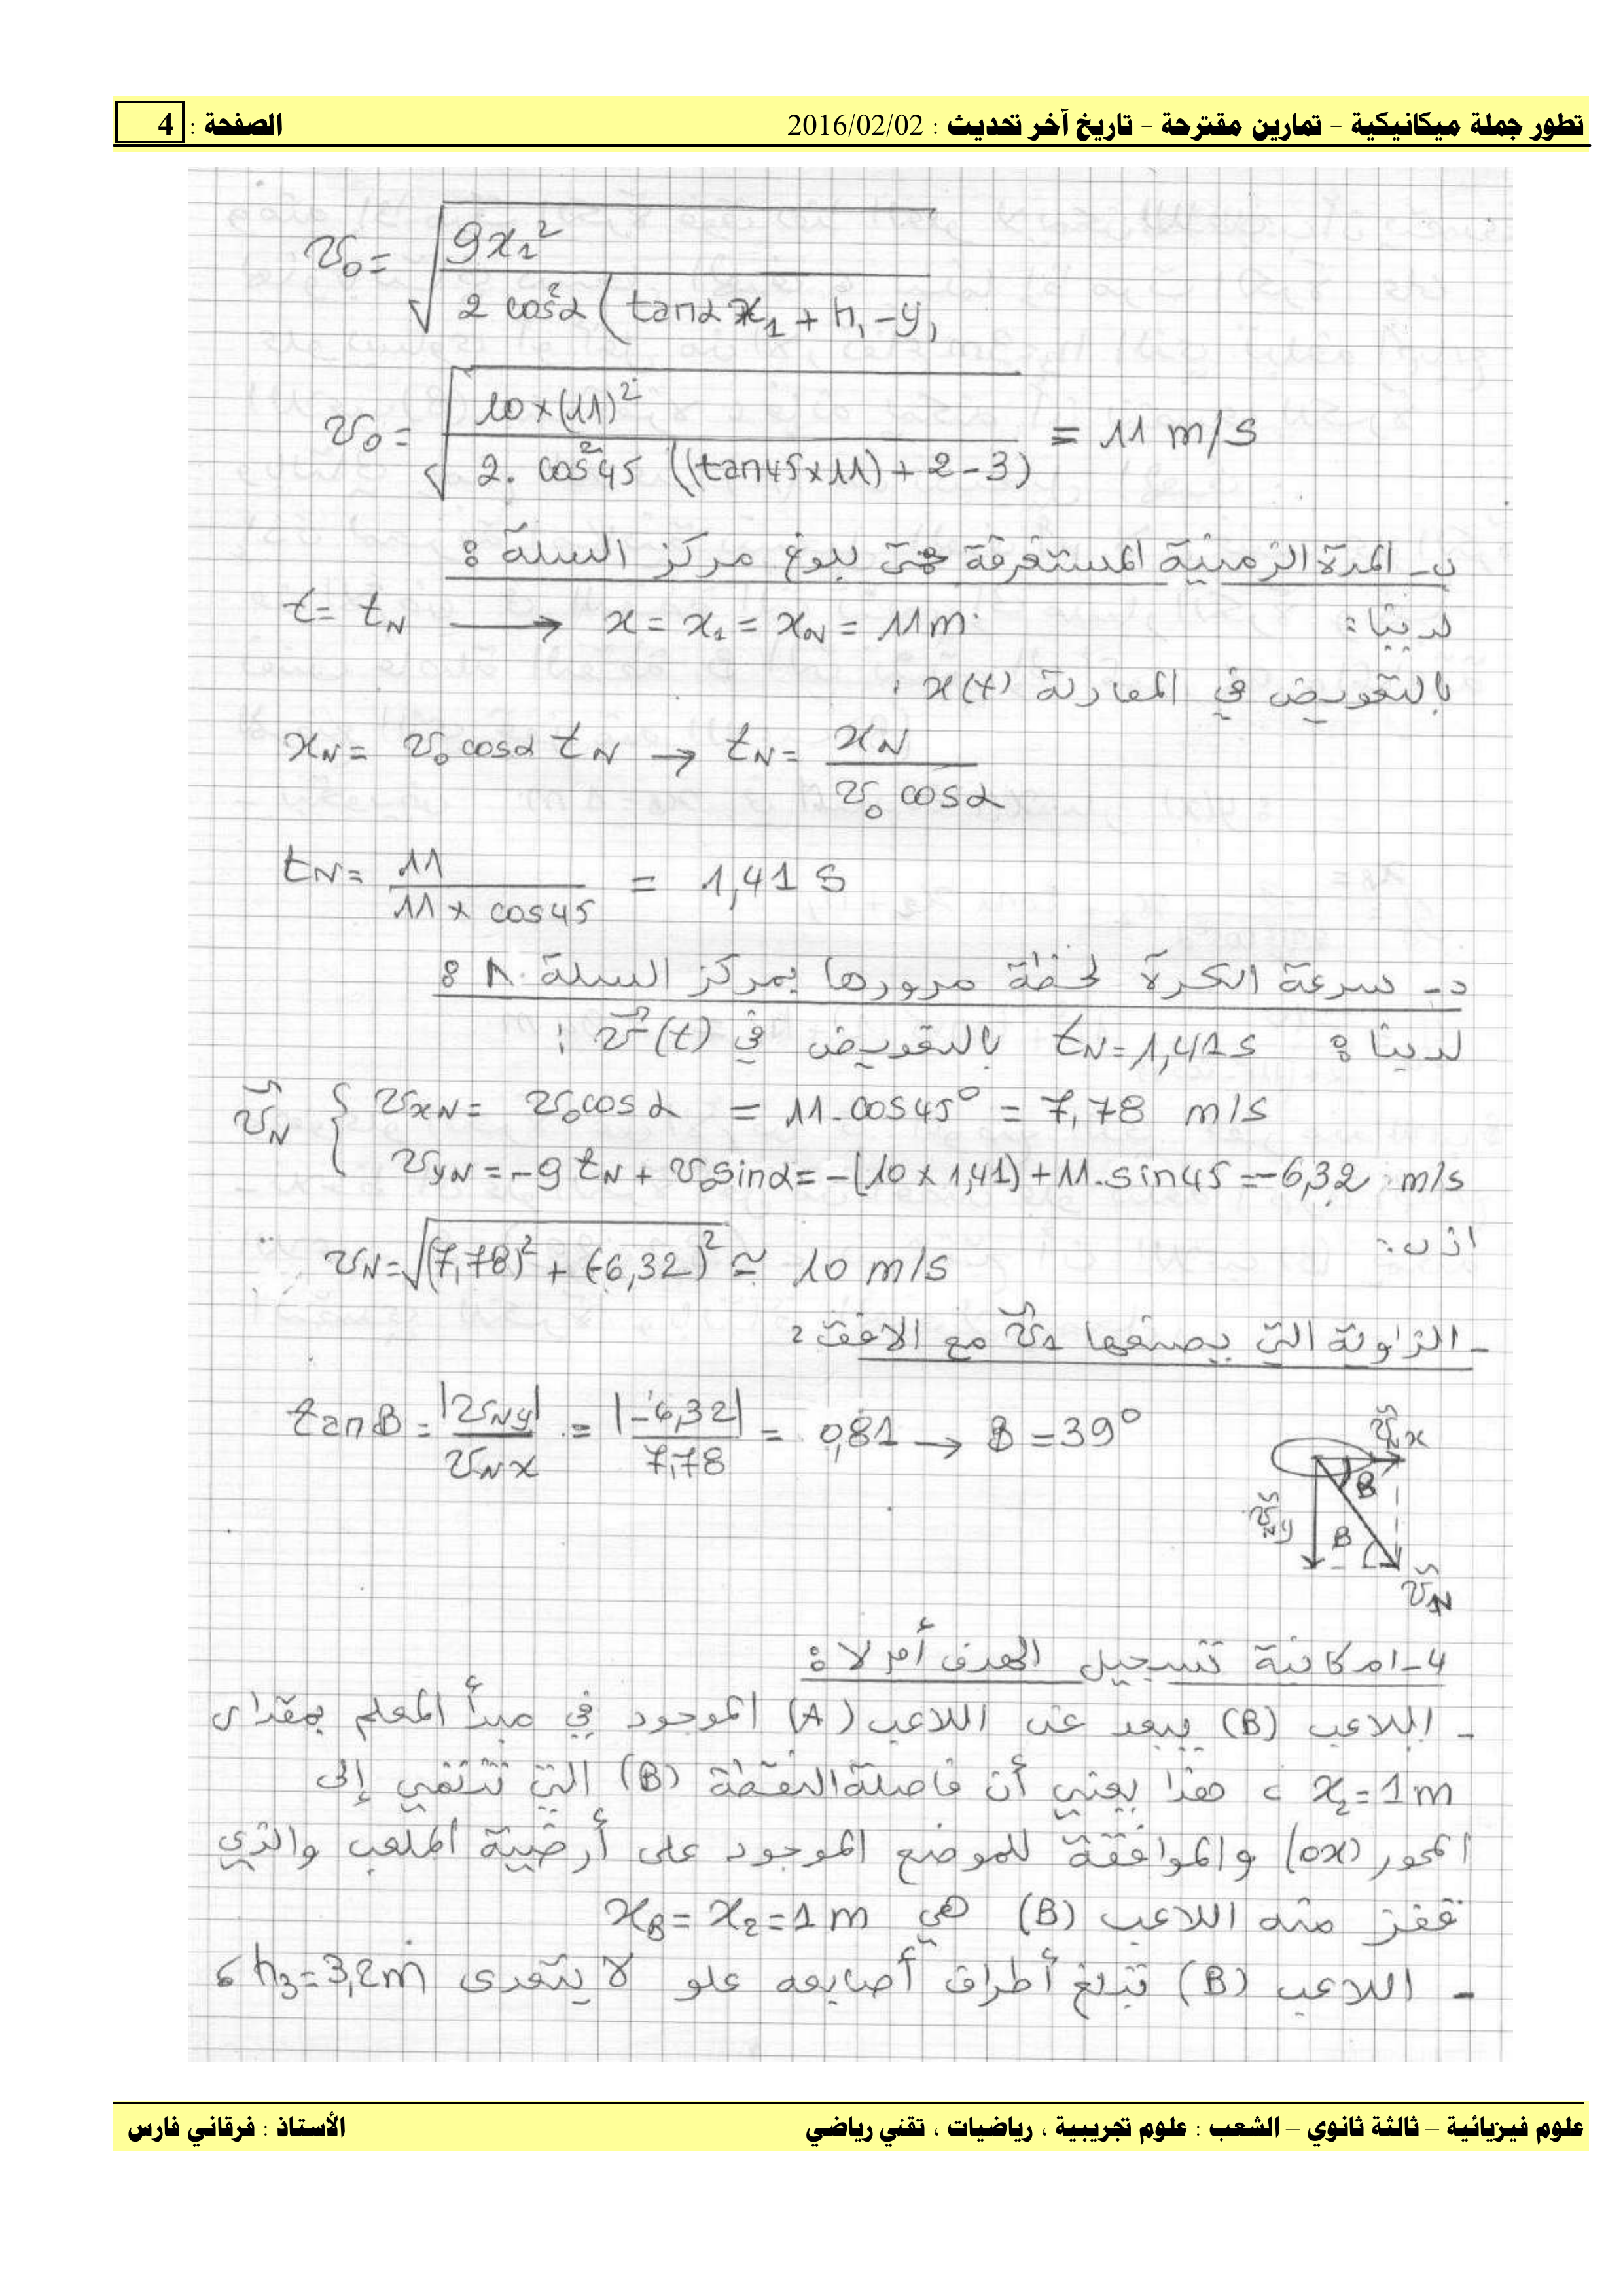 تطور جملة ميكانيكية - تمارين مقترحة - تاريخ آخر تحديث : 2016/02/02 الصفحة : 4
v₀ = √(g x₁² / 2 cos²α (tanα x₁ + h₁ - y₁
v₀ = √(10×(11)² / 2. cos²45 ((tan45×11) + 2 - 3)) = 11 m/s
ب- المدة الزمنية المستغرقة حتى بلوغ مركز السلة :
لدينا: t = t_N → x = x₁ = x_N = 11m
بالتعويض في المعادلة x(t) :
x_N = v₀ cosα t_N → t_N = x_N / v₀ cosα
t_N = 11 / 11 × cos45 = 1,41 s
د- سرعة الكرة لحظة مرورها بمركز السلة N :
لدينا : t_N = 1,41s بالتعويض في v⃗(t) :
v⃗_N { v_xN = v₀cosα = 11.cos45° = 7,78 m/s
v_yN = -g t_N + v₀sinα = -(10 × 1,41) + 11.sin45 = -6,32 m/s
اذن:
v_N = √((7,78)² + (-6,32)²) ≃ 10 m/s
- الزاوية التي يصنعها v⃗₁ مع الافق :
tanB = |v_Ny| / v_Nx = |-6,32| / 7,78 = 0,81 → B = 39°
v⃗_Nx
B
v⃗_Ny
B
v⃗_N
4- امكانية تسجيل الهدف أم لا :
- اللاعب (B) يبعد عن اللاعب (A) الموجود في مبدأ المعلم بمقدار
x₂ = 1m ، هذا يعني أن فاصلة النقطة (B) التي تنتمي إلى
المحور (ox) والموافقة للموضع الموجود على أرضية الملعب والذي
قفز منه اللاعب (B) هي x_B = x₂ = 1m
- اللاعب (B) تبلغ أطراف أصابعه علو لا يتعدى h₃ = 3,2m ،
علوم فيزيائية – ثالثة ثانوي – الشعب : علوم تجريبية ، رياضيات ، تقني رياضي الأستاذ : فرقاني فارس